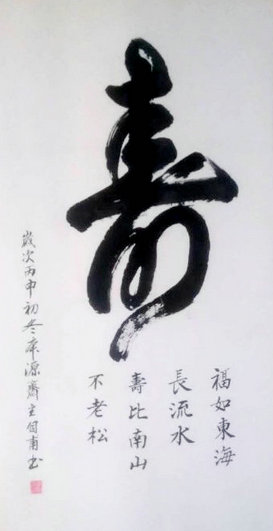 壽
福如東海
長流水
壽比南山
不老松
歲次丙申初冬
源齋主
書